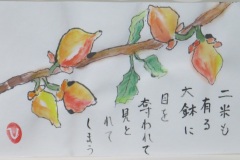 二米も
有る
大鉢に
目を
奪われて
見と
れて
しまう